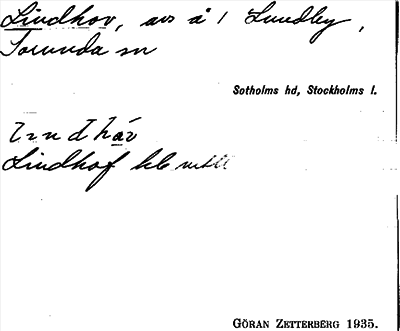 Lindhov, avs å 1 Lundby,
Torunda sn
Sotholms hd, Stockholms l.
Lindhof
GÖRAN ZETTERBERG 1935.